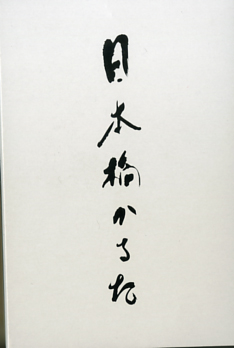 日本橋かるた